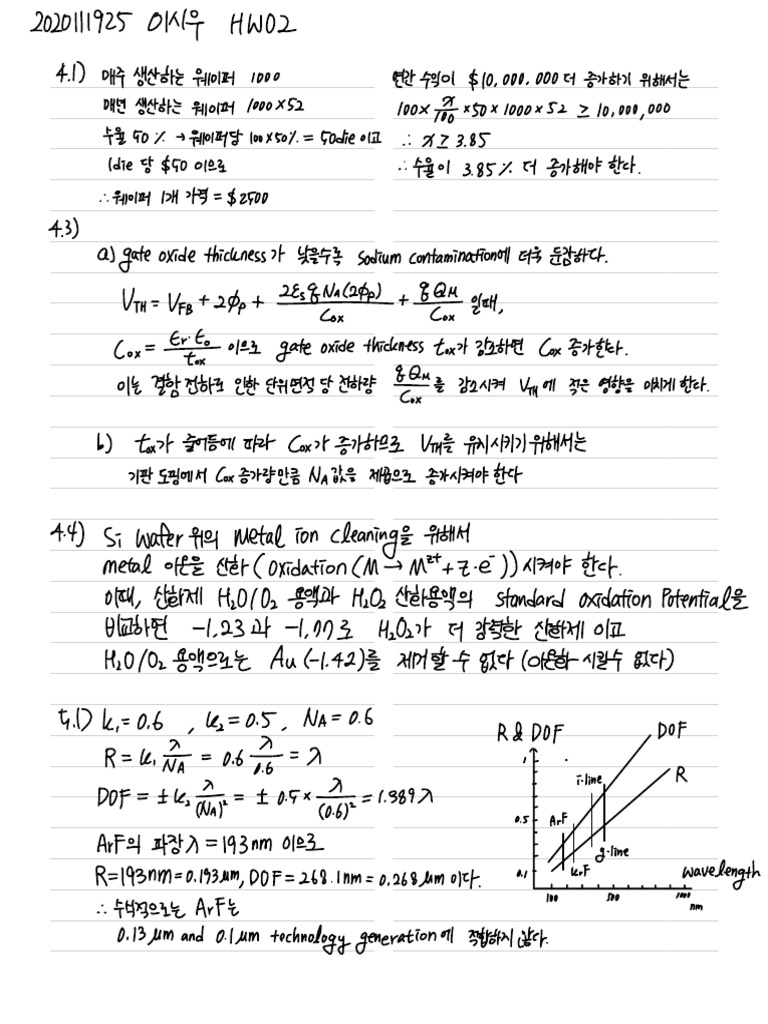 2020111925 이시우 HW02
4.1) 매주 생산하는 웨이퍼 1000
매년 생산하는 웨이퍼 1000×52
수율 50% → 웨이퍼당 100×50% = 50die 이고
1die 당 $50 이으로
∴ 웨이퍼 1개 가격 = $2500
연간 수익이 $10,000,000 더 증가하기 위해서는
100× x/100 ×50×1000×52 ≥ 10,000,000
∴ x ≥ 3.85
∴ 수율이 3.85% 더 증가해야 한다.
4.3)
a) gate oxide thickness가 낮을수록 Sodium contamination에 더욱 둔감하다.
V_TH = V_FB + 2φ_p + 2ε_s q N_A (2φ_p) / C_ox + q Q_M / C_ox 일때,
C_ox = ε_r·ε_o / t_ox 이으로 gate oxide thickness t_ox가 감소하면 C_ox 증가한다.
이는 결함 전하로 인한 단위면적 당 전하량 q Q_M / C_ox 를 감소시켜 V_TH에 적은 영향을 미치게 한다.
b) t_ox가 줄어듦에 따라 C_ox가 증가하므로 V_TH를 유지시키기 위해서는
기판 도핑에서 C_ox 증가량만큼 N_A 값을 제곱으로 증가시켜야 한다
4.4) Si wafer 위의 Metal ion cleaning을 위해서
metal 이온을 산화 (oxidation (M → M^z+ + z·e^-)) 시켜야 한다.
이때, 산화제 H2O/O2 용액과 H2O2 산화용액의 standard oxidation Potential을
비교하면 -1.23과 -1.77로 H2O2가 더 강력한 산화제 이고
H2O/O2 용액으로는 Au (-1.42)를 제거할 수 없다 (이온화 시킬수 없다)
5.1) k_1 = 0.6 , k_2 = 0.5 , NA = 0.6
R = k_1 λ/NA = 0.6 λ/0.6 = λ
DOF = ± k_2 λ/(NA)^2 = ± 0.5 × λ/(0.6)^2 = 1.389 λ
ArF의 파장 λ = 193nm 이으로
R = 193nm = 0.193μm, DOF = 268.1nm = 0.268μm 이다.
∴ 수식적으로는 ArF는
0.13 μm and 0.1μm technology generation에 적합하지 않다.
R & DOF
DOF
R
1
i-line
0.5
ArF
g-line
KrF
0.1
wavelength
100
500
1000
nm